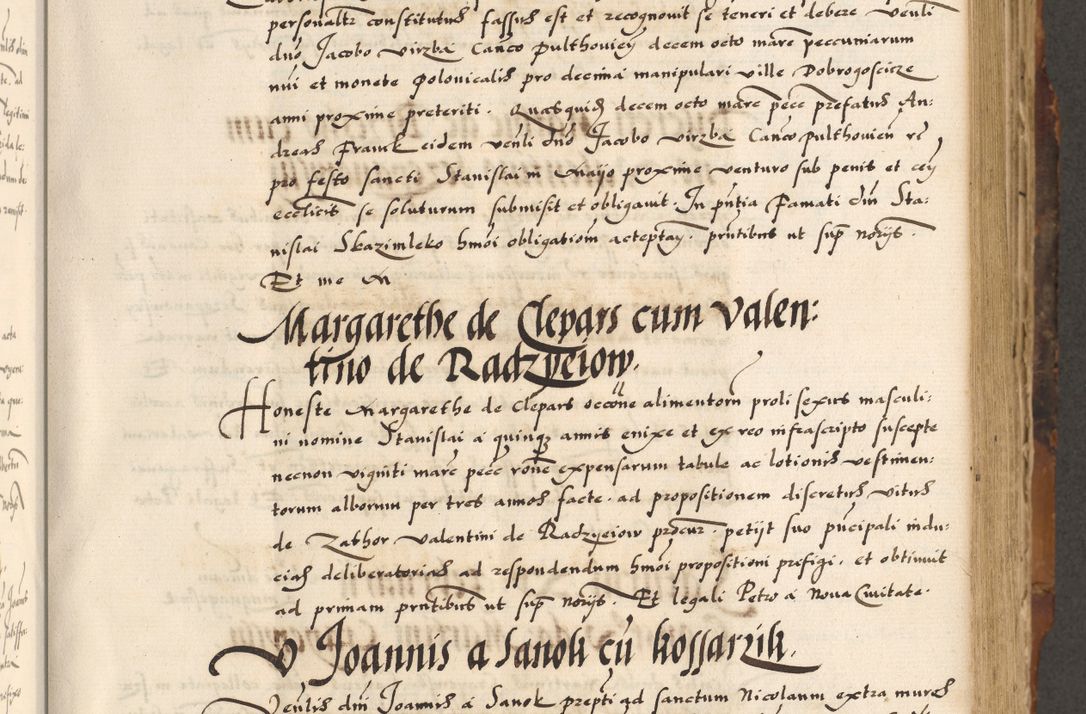 personaltr constitutus fassus est et recognouit se teneri et debere venli
dno Jacobo virzba Canco pulthouien decem octo marc peccuniarum
nui et monete polonicalis pro decima manipulari ville Dobrogoscicze
anni proxime preteriti. Quasquid decem octo marc pecc prefatus An:
dreas Franck eidem venli dno Jacobo virzba Canco pulthouien re
pro festo sancti Stanislai in Maijo proxime venturo sub penis et cen
ecclicis se soluturum submisit et obligauit. In pntia Famati dni Sta:
nislai Skazimleko hmoi obligationi acceptan. pntibus ut sup norijs.
Et me M
Margarethe de Clepars cum valen:
tino de Radzyeiow.
Honeste Margarethe de Clepars occone alimentorum proli sexus masculi:
ni nomine Stanislai a quinque annis enixe et ex reo infrascripto suscepte
necnon viginti marc pecc rone expensarum tabule ac lotionis vestimen:
torum alborum per tres annos facte. ad propositionem discretus vitus
de Zathor valentini de Radzyeiow procur. petijt suo pncipali indu:
cias deliberatorias ad respondendum hmoi propositioni prefigi. et obtinuit
ad primam pntibus ut sup norijs. Et legali Petro a Noua Ciuitate.
V Joannis a Sanok cu kossarzik.
Venlis dni Joannis a Sanok prepti ad sanctum Nicolaum extra muros